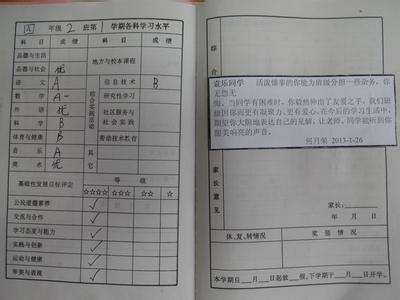 四 年级 2 班第 学期各科学习水平
科 目 成 绩 科 目 成 绩
品德与生活 地方与校本课程
品德与社会 优
语 文 A 综合实践活动 信息技术 B
数 学 A- 研究性学习
外 语 优 社区服务与社会实践
科 学 B
体育与健康 B 劳动技术教育
音 乐 A 其它
美 术 优
基础性发展目标评定 等 级
☆☆☆☆ ☆☆☆ ☆☆ ☆
公民道德素养 ✓
交流与合作 ✓
学习态度与能力 ✓
实践与创新 ✓
运动与健康 ✓
审美与表现 ✓
综合
袁乐同学 活泼懂事的你能为班级分担一些杂务,你
无怨无
悔,当同学有困难时,你毅然伸出了友爱之手,我们班
级因你而更有凝聚力,更有爱心,在今后的学习生活中,
期望你大胆地表达自己的见解,让老师、同学能听到你
甜美响亮的声音。
何月荣 2013-1-26
家长意见
家长:
年 月 日
休、复、转情况 奖惩情况
本学期自 月 日起放 假,下学期于 月 日开学。